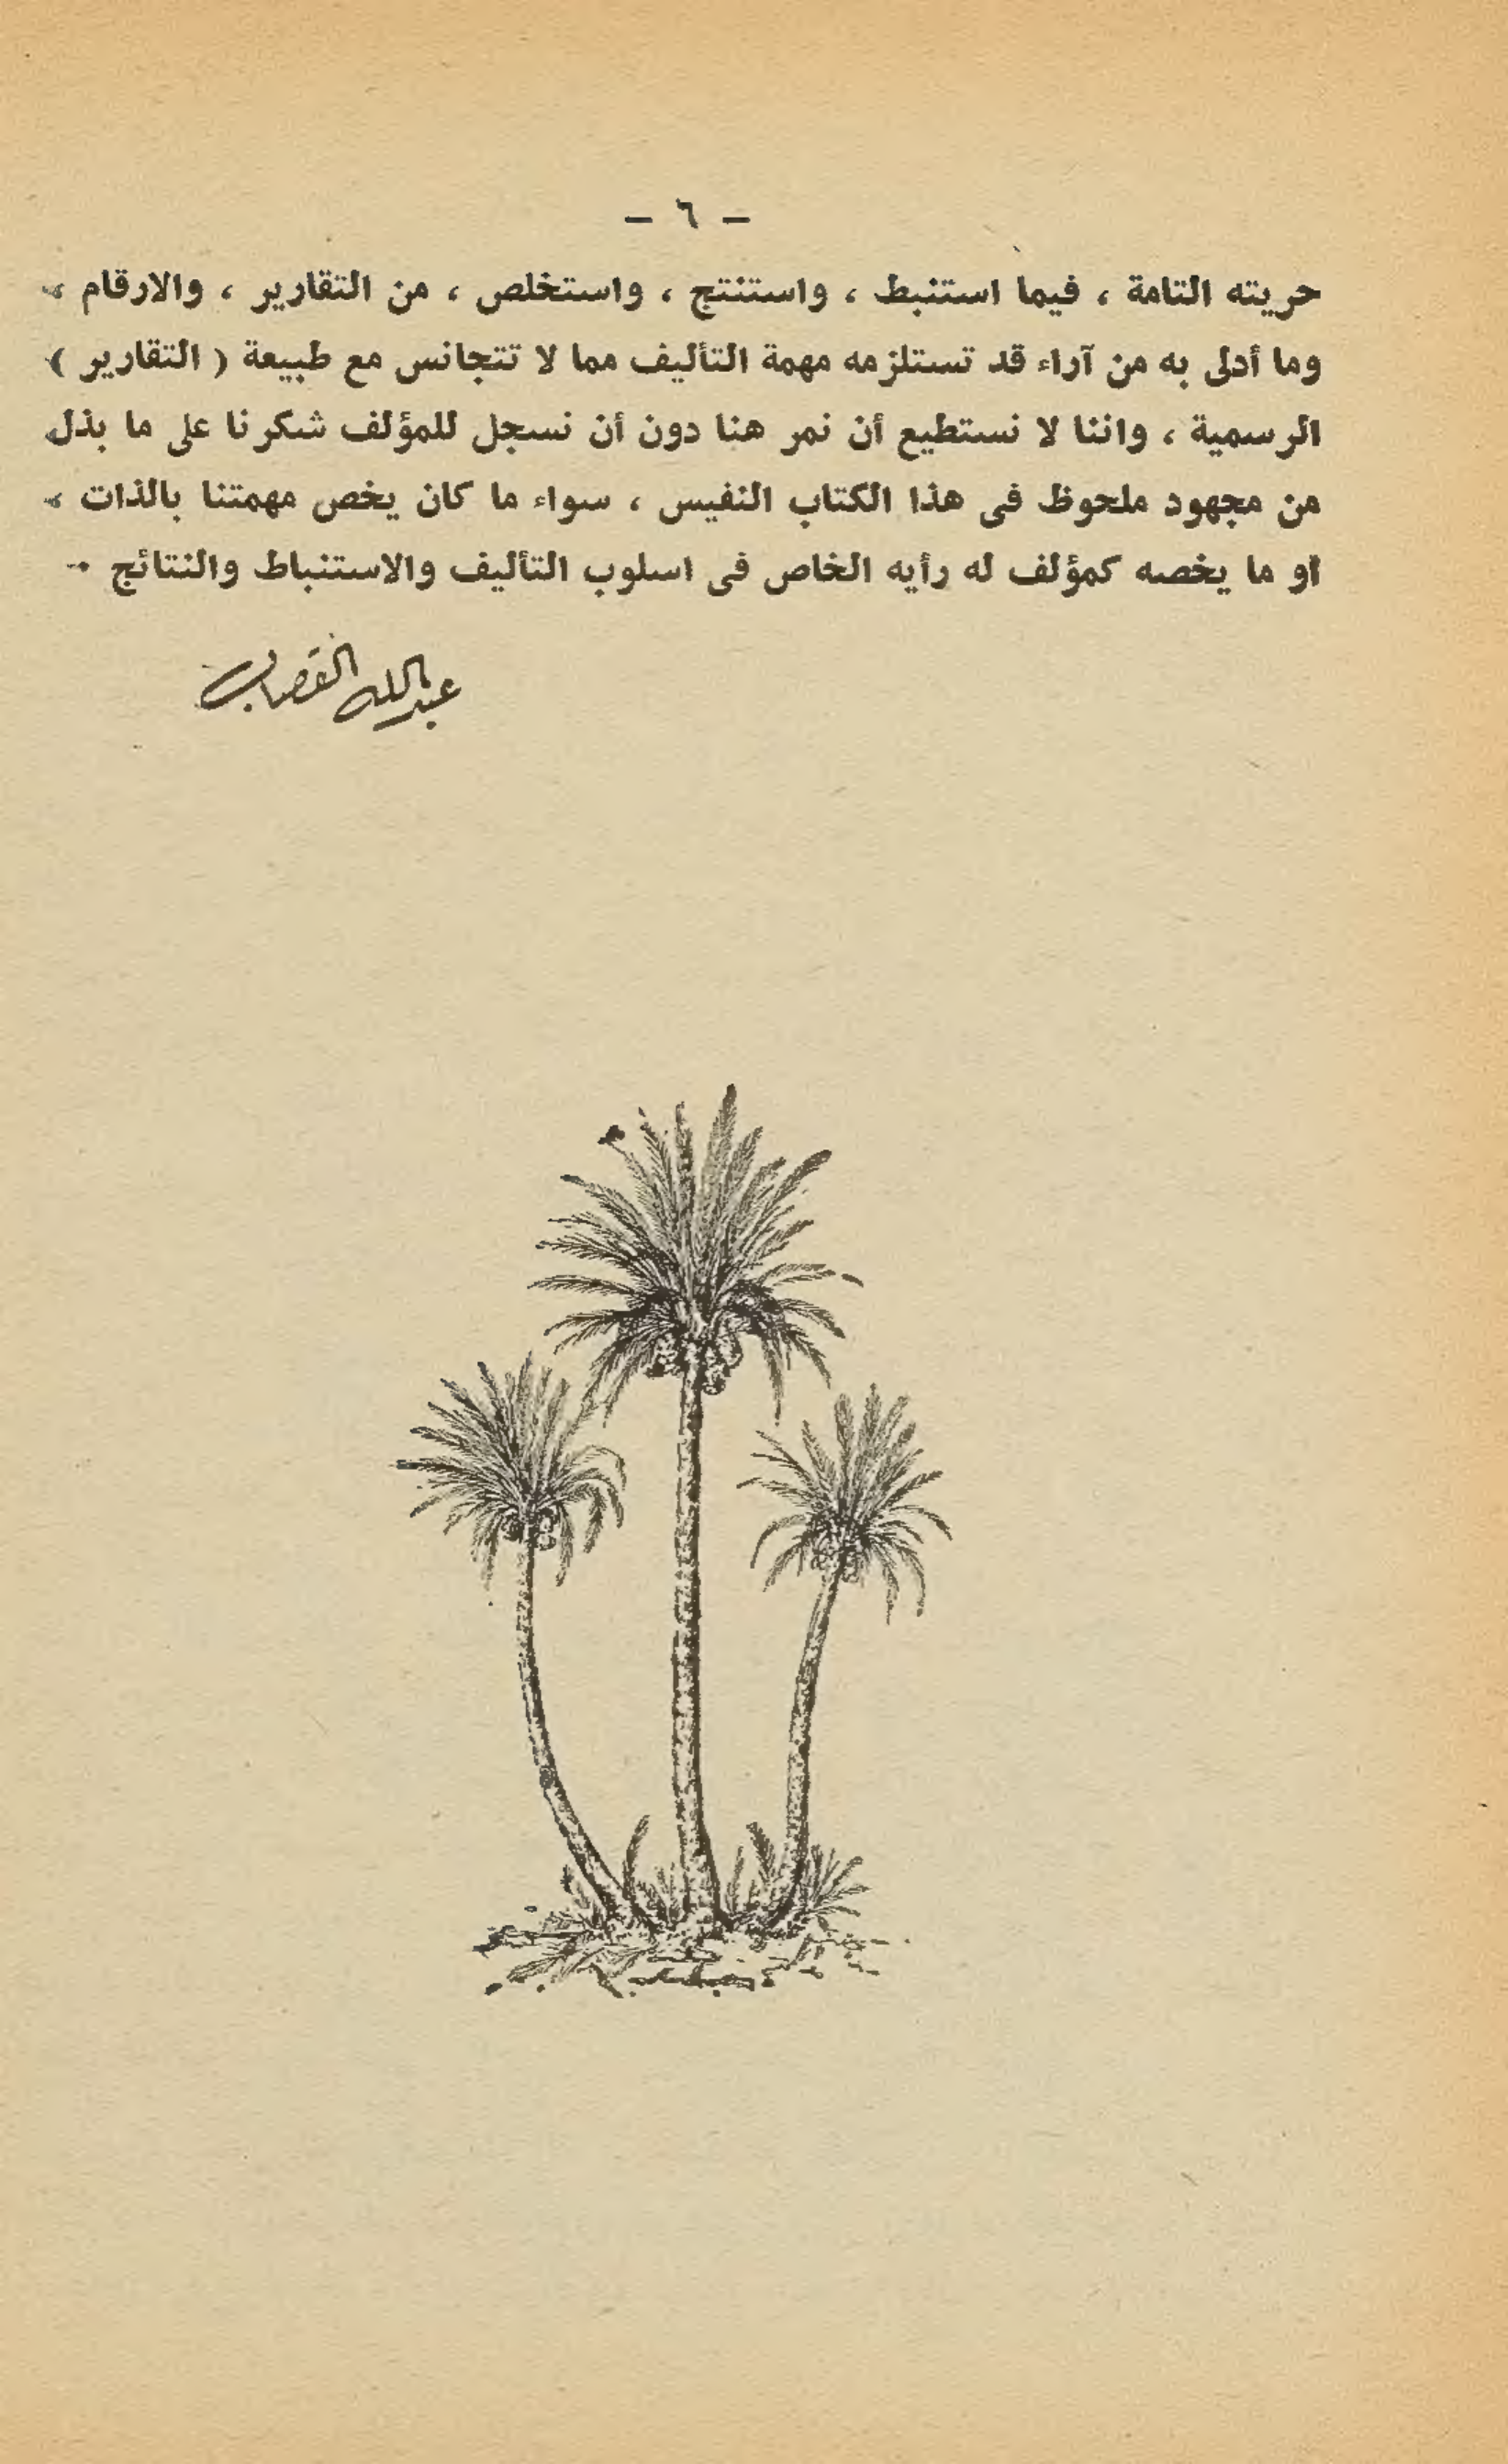 — ٦ —
حريته التامة ، فيما استنبط ، واستنتج ، واستخلص ، من التقارير ، والارقام ،
وما أدلى به من آراء قد تستلزمه مهمة التأليف مما لا تتجانس مع طبيعة ( التقارير )
الرسمية ، واننا لا نستطيع أن نمر هنا دون أن نسجل للمؤلف شكرنا على ما بذل
من مجهود ملحوظ فى هذا الكتاب النفيس ، سواء ما كان يخص مهمتنا بالذات ،
او ما يخصه كمؤلف له رأيه الخاص فى اسلوب التأليف والاستنباط والنتائج ٠
عبدالله القصاب